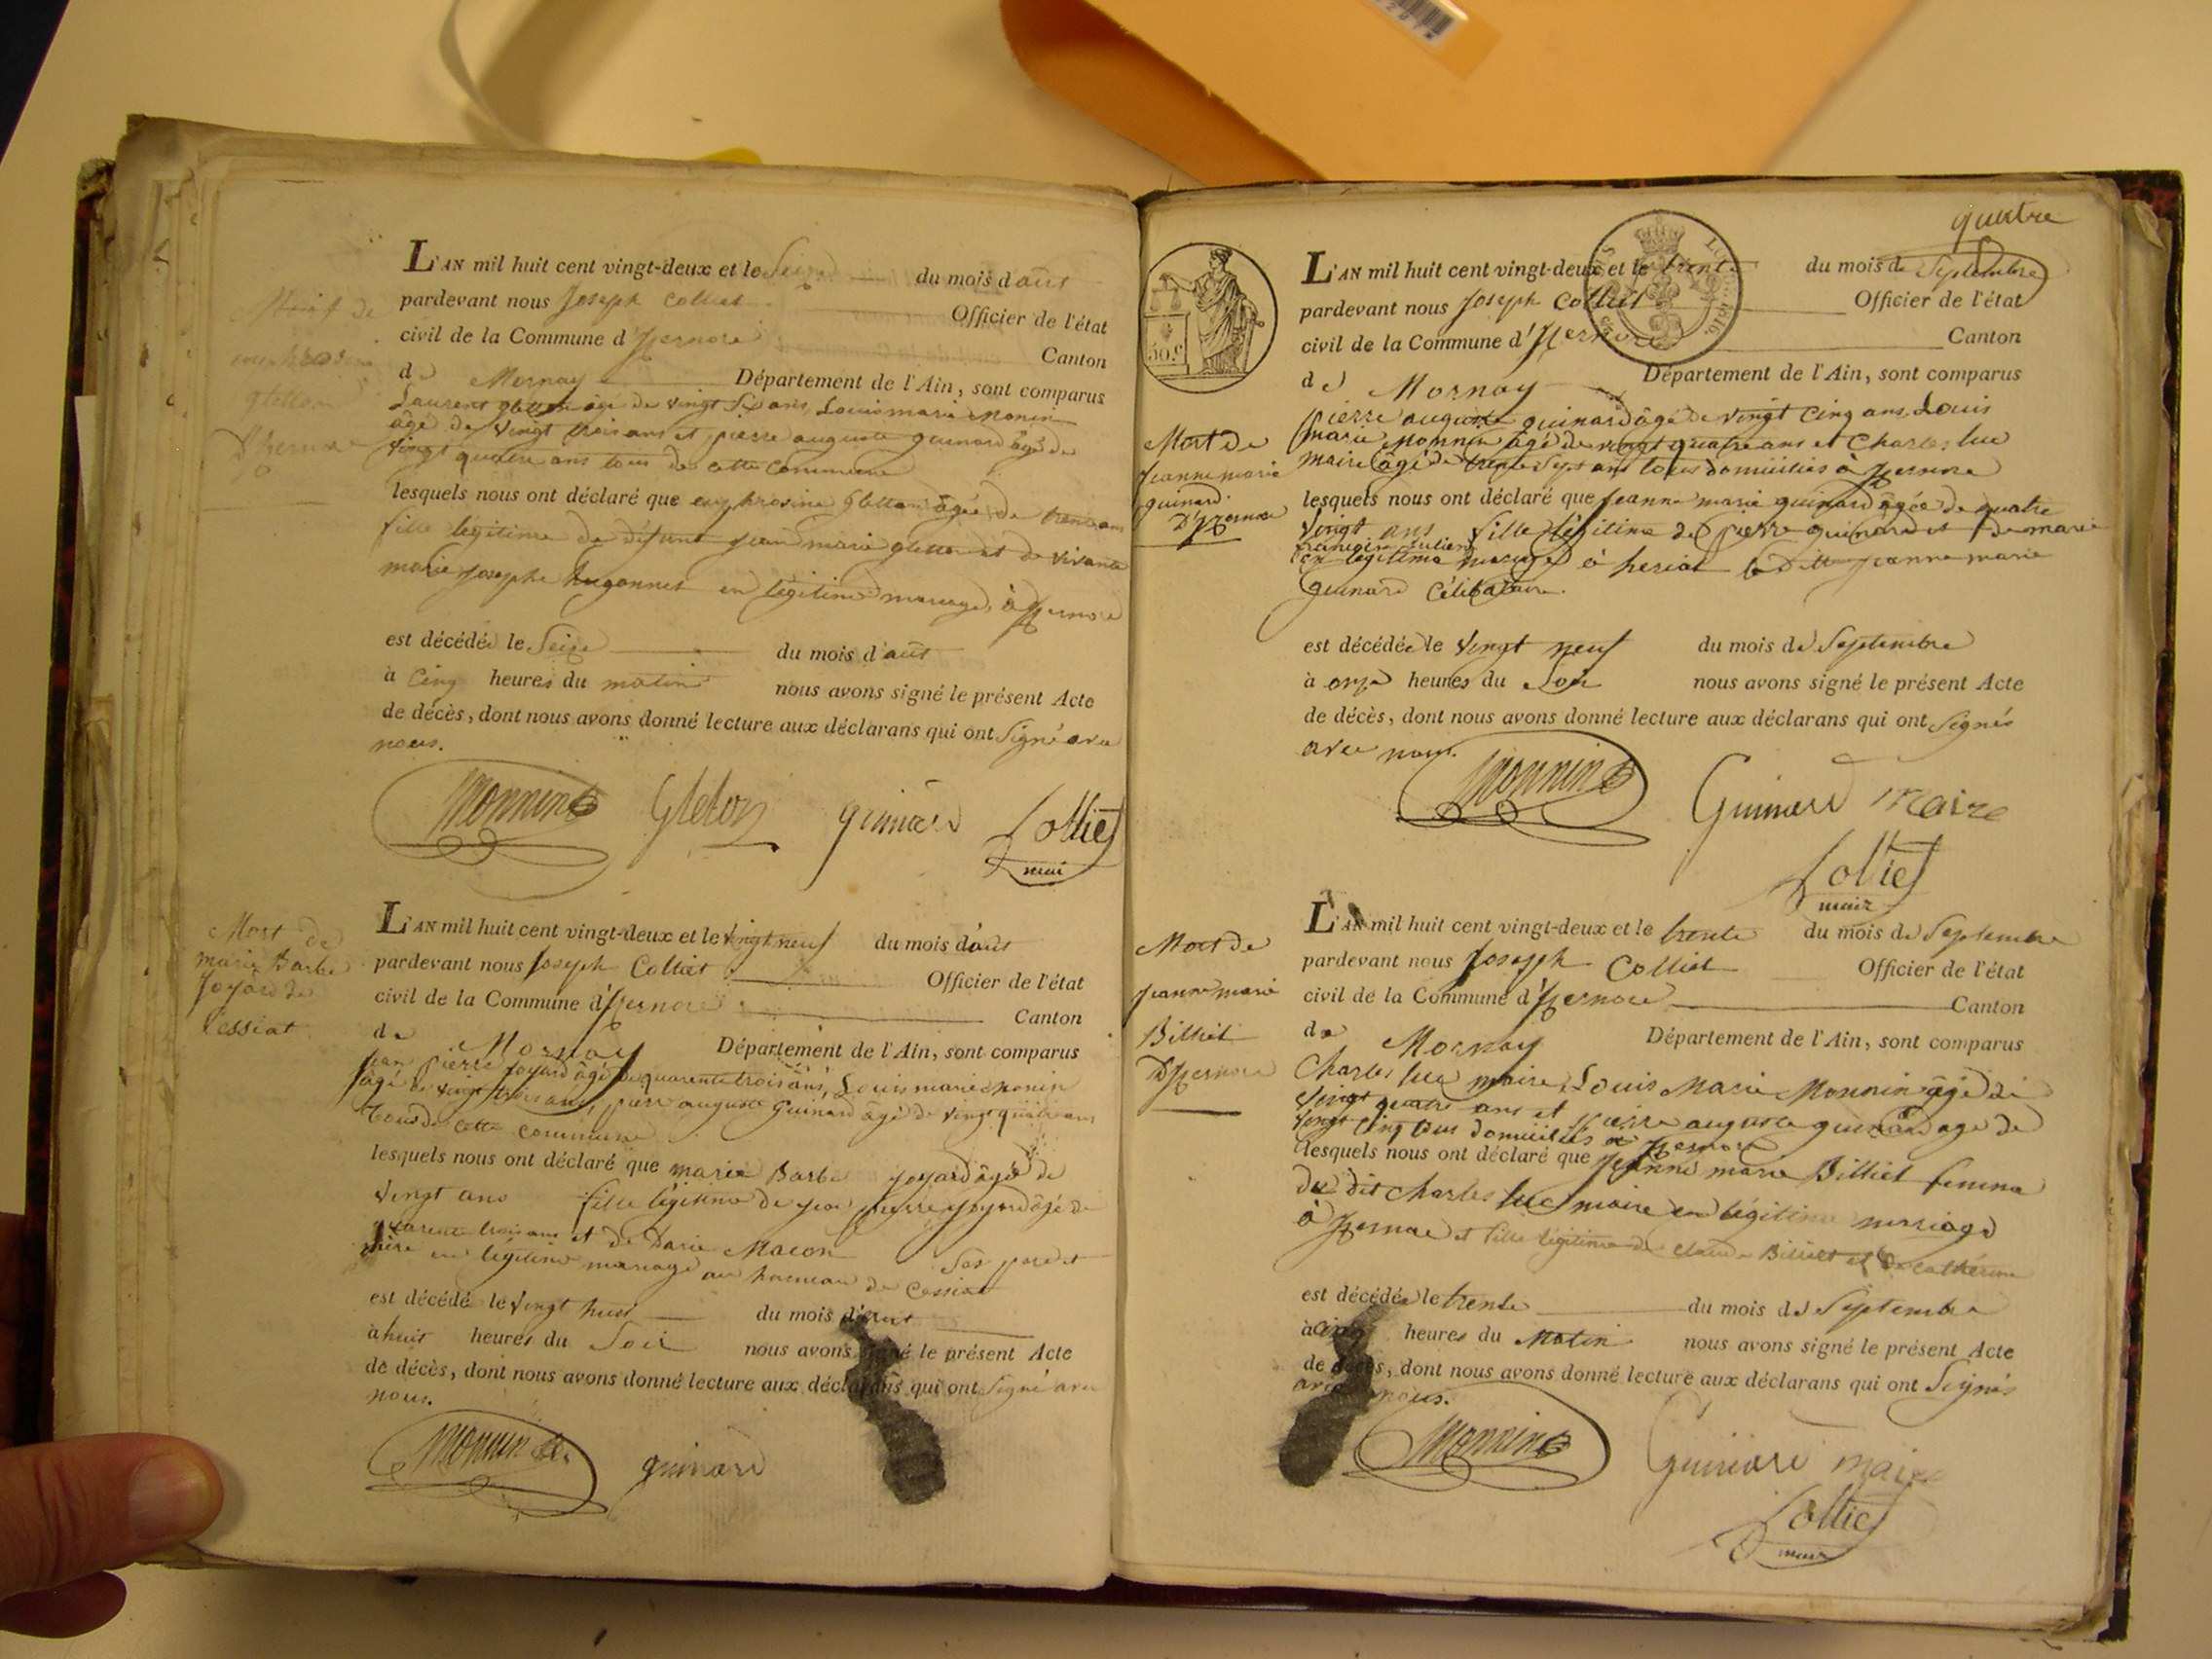 Mort de
euphrosine
gletton
L'AN mil huit cent vingt-deux et le Seize du mois d'aût
pardevant nous Joseph Colliet Officier de l'état
civil de la Commune d'Izernore Canton
de Mornay Département de l'Ain, sont comparus
Laurent gletton âgé de vingt ans, Louis marie Monin
âgé de vingt trois ans et pierre auguste guinard âgé de
vingt quatre ans tous de cette commune
lesquels nous ont déclaré que euphrosine gletton âgée de trente ans
fille légitime de défunt jean marie gletton et de vivante
marie josephe hugonnet en légitime mariage à Izernore
est décédée le Seize du mois d'aût
à Cinq heures du matin nous avons signé le présent Acte
de décès, dont nous avons donné lecture aux déclarans qui ont Signé avec
nous.
Monnin Gleton guinard Colliet
mair
Mort de
marie Barbe
Joyard de
Cessiat
L'AN mil huit cent vingt-deux et le vingt neuf du mois d'aût
pardevant nous Joseph Colliet Officier de l'état
civil de la Commune d'Izernore Canton
de Mornay Département de l'Ain, sont comparus
jean pierre joyard âgé de quarente trois ans, Louis marie Monin
âgé de vingt trois ans, pierre auguste Guinard âgé de vingt quatre ans
tous de cette commune
lesquels nous ont déclaré que marie Barbe joyard âgée de
vingt ans fille légitime de jean pierre joyard âgé de
quarente trois ans et de Marie Macon Ses pere et
mère en légitime mariage au hameau de Cessiat
est décédé le vingt huit du mois d'aût
à huit heures du Soir nous avons signé le présent Acte
de décès, dont nous avons donné lecture aux déclarans qui ont Signé avec
nous.
Monnin guinard
quatre
50.c
Mort de
Jeanne marie
guinard
D'Izernore
L'AN mil huit cent vingt-deux et le trente du mois de Septembre
pardevant nous Joseph Colliet Officier de l'état
civil de la Commune d'Izernore Canton
de Mornay Département de l'Ain, sont comparus
pierre auguste guinard âgé de vingt cinq ans, Louis
marie Monnin âgé de vingt quatre ans et Charles luc
maire âgé de trente Sept ans tous domiciliés à Izernore
lesquels nous ont déclaré que Jeanne marie guinard âgée de quatre
vingt ans fille légitime de pierre guinard et de marie
en légitime mariage à heriat la ditte jeanne marie
guinard Célibataire.
est décédée le vingt neuf du mois de Septembre
à onze heures du Soir nous avons signé le présent Acte
de décès, dont nous avons donné lecture aux déclarans qui ont Signés
avec nous.
Monnin Guinard maire
Colliet
mair
Mort de
jeanne marie
Billiet
D'Izernore
L'AN mil huit cent vingt-deux et le trente du mois de Septembre
pardevant nous Joseph Colliet Officier de l'état
civil de la Commune d'Izernore Canton
de Mornay Département de l'Ain, sont comparus
Charles luc maire, Louis Marie Monnin âgé de
vingt quatre ans et pierre auguste guinard age de
vingt cinq tous domiciliés a Izernore
lesquels nous ont déclaré que Jeanne marie Billiet femme
du dit Charles luc maire en légitime mariage
à Izernore et fille légitime de Claude Billiet et de Catherine
est décédée le trente du mois de Septembre
à cinq heures du Matin nous avons signé le présent Acte
de décès, dont nous avons donné lecture aux déclarans qui ont Signés
avec nous.
Monnin Guinard maire
Colliet
mair